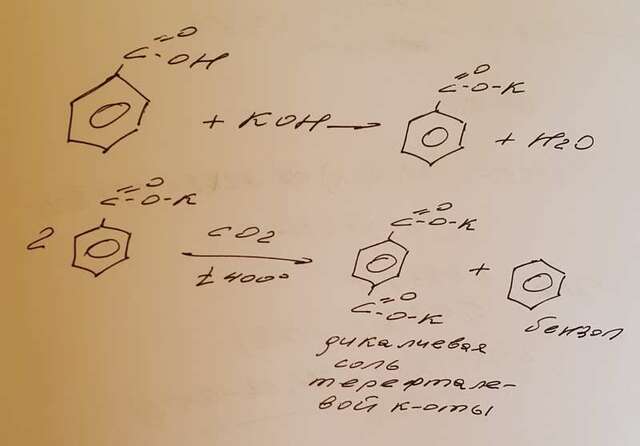 C=O
OH
+ KOH →
C=O
O-K
+ H2O
2
C=O
O-K
CO2
t 400°
C=O
O-K
C=O
O-K
+
бензол
дикалиевая
соль
терефтале-
вой к-оты